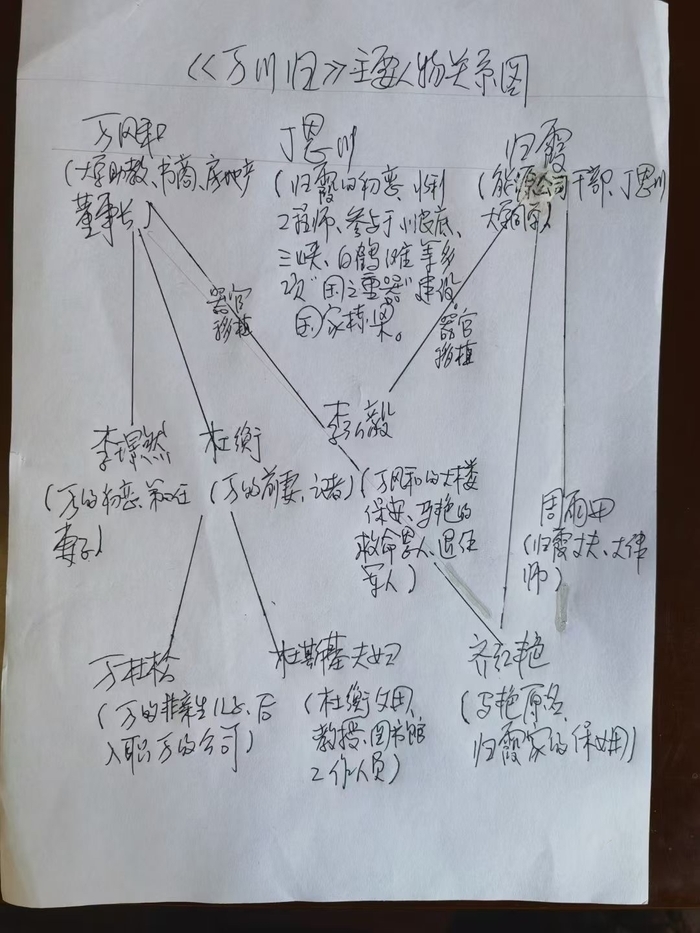 《万川归》主要人物关系图
万风和
(大学助教、书商、房地产
董事长)
丁恩川
(归霞的初恋、水利
工程师、参与小浪底、
三峡、白鹤滩等多
项“国之重器”建设,
国家栋梁。
归霞
(能源公司干部、丁恩川
大学同学)
器官
移植
器官
移植
李璟然
(万的初恋、第二任
妻子)
杜衡
(万的前妻、记者)
李小毅
(万风和的大楼
保安、马艳的
救命恩人、退伍
军人)
周雨田
(归霞丈夫、大律
师)
万杜松
(万的非亲生儿子、后
入职万的公司)
杜斯基夫妇
(杜衡父母、
教授、图书馆
工作人员)
齐红艳
(马艳原名、
归霞家的保姆)